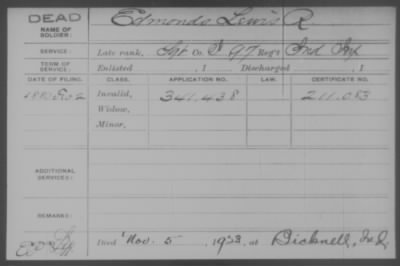 DEAD
NAME OF SOLDIER:
Edmonds Lewis R
SERVICE: Late rank, Sgt Co. D 97 Reg't Ind Inf
TERM OF SERVICE: Enlisted , 1 Discharged , 1
DATE OF FILING. CLASS. APPLICATION NO. LAW. CERTIFICATE NO.
1880 Feb 2 Invalid, 341.438 211.083
Widow,
Minor,
ADDITIONAL SERVICES:
REMARKS:
Died Nov. 5 , 1923, at Bicknell, Ind.